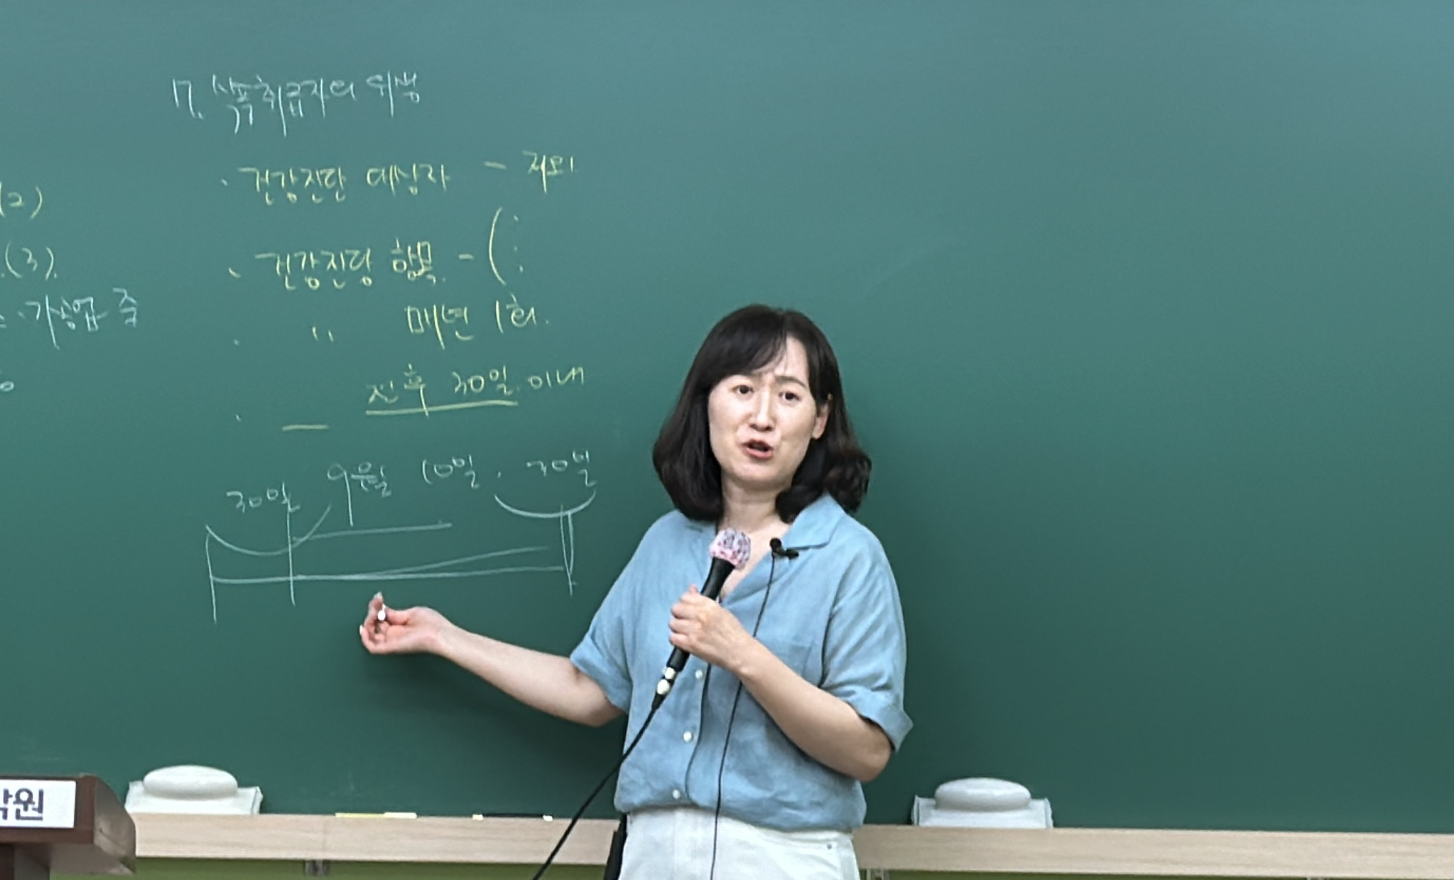 17. 식품취급자의 위생
(2)
· 건강진단 대상자 - 제외
(3).
· 건강진단 항목 - ( :
· 가공업 중
· " 매년 1회.
· — 전후 30일 이내
30일 9월 10일. 30일
학원